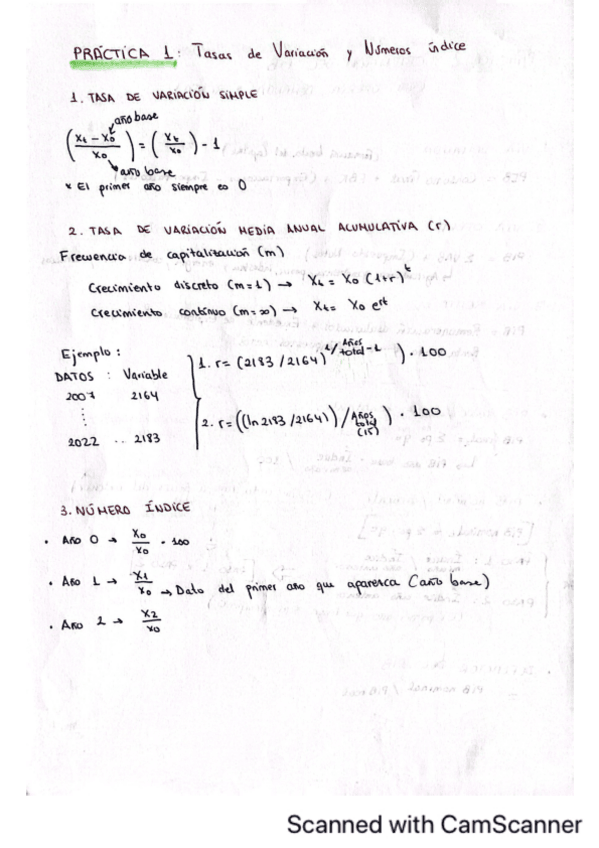 PRÁCTICA 1: Tasas de Variación y Números índice
1. TASA DE VARIACIÓN SIMPLE
año base
(Xt - X0 / X0) = (Xt / X0) - 1
año base
* El primer año siempre es 0
2. TASA DE VARIACIÓN MEDIA ANUAL ACUMULATIVA (r)
Frecuencia de capitalización (m)
Crecimiento discreto (m=1) → Xt = X0 (1+r)^t
Crecimiento continuo (m=∞) → Xt = X0 e^rt
Ejemplo:
DATOS : Variable
2007 2164
⋮
2022 .. 2183
1. r = (2183/2164)^1/Años total - 1) · 100
2. r = ((ln 2183/2164))/Años total (15)) · 100
3. NÚMERO ÍNDICE
· Año 0 → X0/X0 · 100
· Año 1 → X1/X0 → Dato del primer año que aparezca (año base)
· Año 2 → X2/X0
Scanned with CamScanner